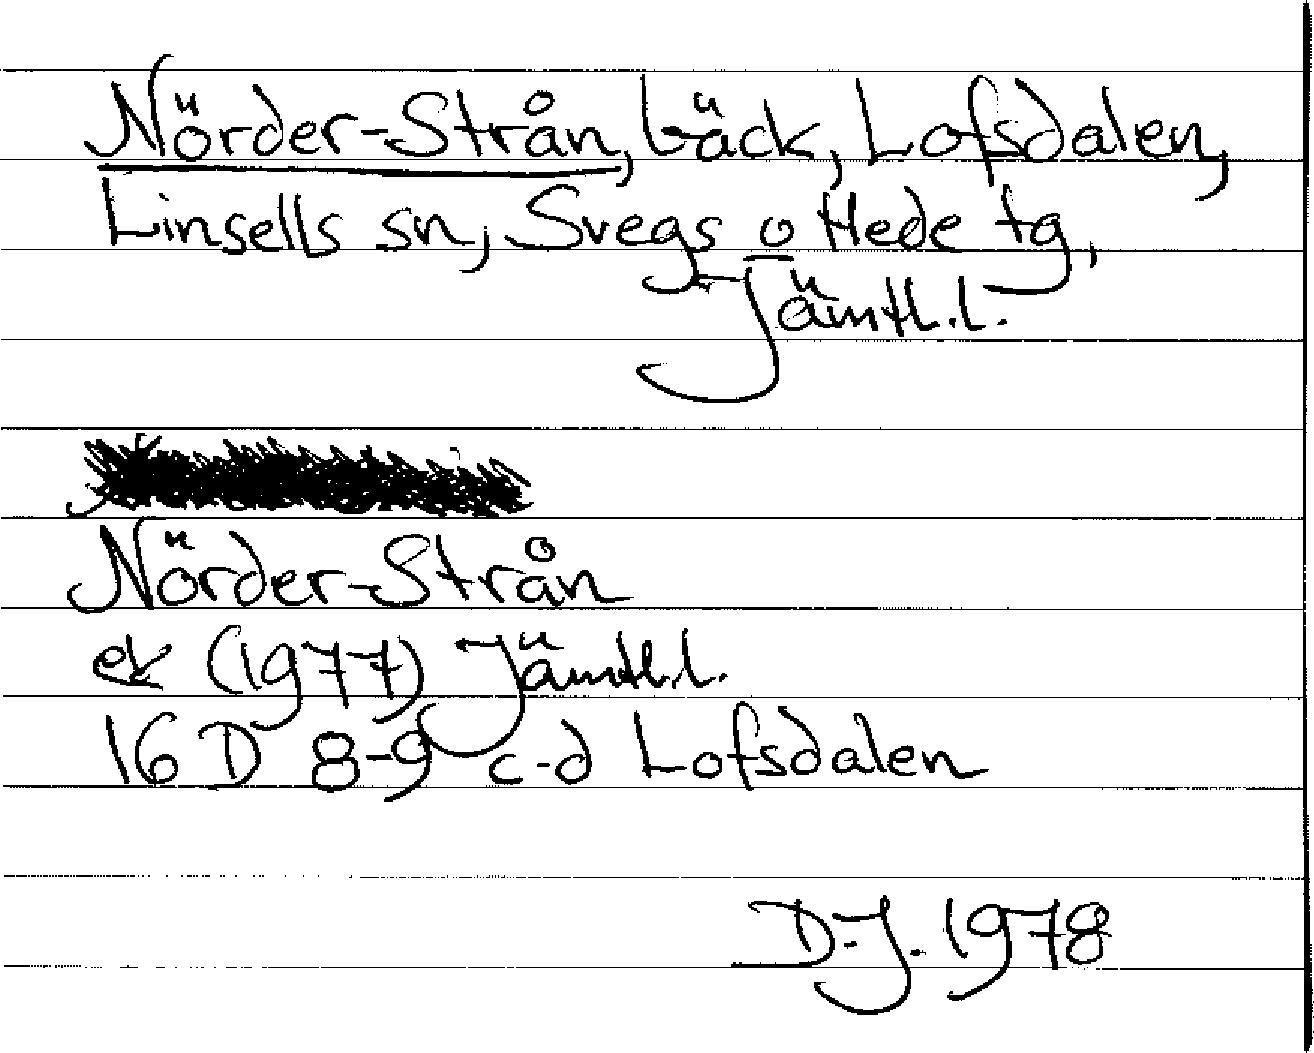 Nörder-Strån, bäck, Lofsdalen,
Linsells sn, Svegs o Hede tg,
Jämtl.l.
Nörder-Strån
ek (1977) Jämtl.l.
16 D 8-9 c-d Lofsdalen
D.J. 1978